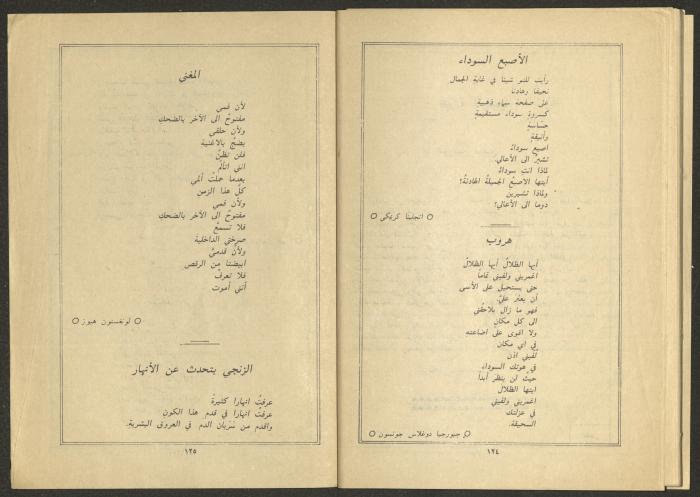 الأصبع السوداء
رأيت للتو شيئا في غاية الجمال
نحيفا وهادئا
على صفحة سماء ذهبية
كسروة سوداء مستقيمة
حساسة
وأنيقة
اصبع سوداء
تشير الى الأعالي
لماذا انت سوداء
أيتها الاصبع الجميلة الهادئة؟
ولماذا تشيرين
دوما الى الأعالي؟
○ انجلينا كريمكي ○
هروب
أيها الظلال أيها الظلال
اغمريني ولفيني تماما
حتى يستحيل على الأسى
أن يعثر علي
فهو ما زال يلاحقني
الى كل مكان
ولا اقوى على اضاعته
في اي مكان
لفيني اذن
في هوتك السوداء
حيث لن ينظر أبدا
ايتها الظلال
اغمريني ولفيني
في عزلتك
السحيقة.
○ جيورجيا دوغلاس جونسون ○
١٢٤
المغني
لأن فمي
مفتوح الى الآخر بالضحك
ولأن حلقي
يضج بالاغنية
فلن تظن
انني اتألم
بعدما حملت ألمي
كل هذا الزمن
ولأن فمي
مفتوح الى الآخر بالضحك
فلا تسمع
صرختي الداخلية
ولأن قدمي
ابيضتا من الرقص
فلا تعرف
أنني أموت
○ لونغستون هيوز ○
الزنجي يتحدث عن الأنهار
عرفت انهارا كثيرة
عرفت انهارا في قدم هذا الكون
وأقدم من سريان الدم في العروق البشرية.
١٢٥